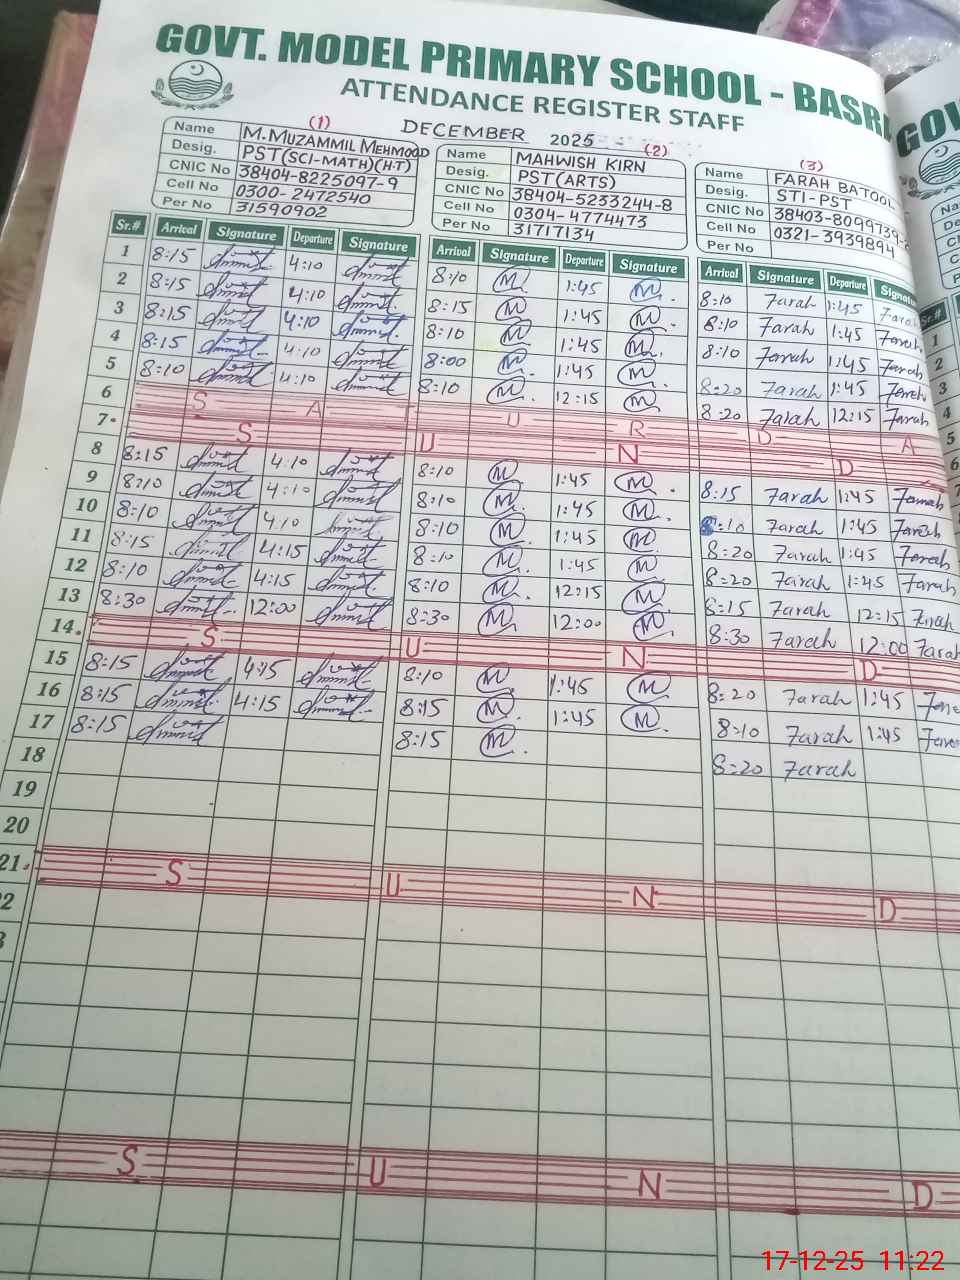 GOVT. MODEL PRIMARY SCHOOL - BASRA
ATTENDANCE REGISTER STAFF
DECEMBER 2025
(1)
Name M.MUZAMMIL MEHMOOD
Desig. PST(SCI-MATH)(H-T)
CNIC No 38404-8225097-9
Cell No 0300-2472540
Per No 31590902
(2)
Name MAHWISH KIRN
Desig. PST(ARTS)
CNIC No 38404-5233244-8
Cell No 0304-4774473
Per No 31717134
(3)
Name FARAH BATOOL
Desig. STI-PST
CNIC No 38403-8099739-
Cell No 0321-3939894
Per No
Sr.# Arrival Signature Departure Signature Arrival Signature Departure Signature Arrival Signature Departure Signatu
1 8:15 4:10 8:10 M 1:45 M 8:10 Farah 1:45 Farah
2 8:15 4:10 8:15 M 1:45 M 8:10 Farah 1:45 Farah
3 8:15 4:10 8:10 M 1:45 M 8:10 Farah 1:45 Farah
4 8:15 4:10 8:00 M 1:45 M 8:20 Farah 1:45 Farah
5 8:10 4:10 8:10 M 12:15 M 8:20 Farah 12:15 Farah
6 S A U R D A
7 S U N D
8 8:15 4:10 8:10 M 1:45 M 8:15 Farah 1:45 Farah
9 8:10 4:10 8:10 M 1:45 M 8:10 Farah 1:45 Farah
10 8:10 4:10 8:10 M 1:45 M 8:20 Farah 1:45 Farah
11 8:15 4:15 8:10 M 1:45 M 8:20 Farah 1:45 Farah
12 8:10 4:15 8:10 M 12:15 M 8:15 Farah 12:15 Farah
13 8:30 12:00 8:30 M 12:00 M 8:30 Farah 12:00 Farah
14 S U N D
15 8:15 4:15 8:10 M 1:45 M 8:20 Farah 1:45
16 8:15 4:15 8:15 M 1:45 M 8:10 Farah 1:45
17 8:15 8:15 M 8:20 Farah
18
19
20
21 S U N D
2
3
S U N D
17-12-25 11:22